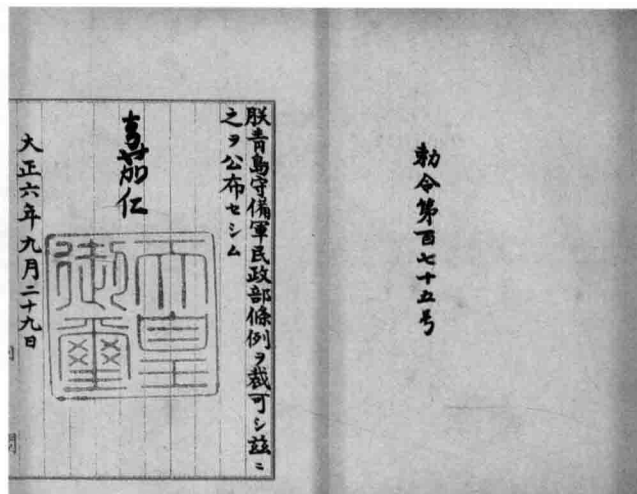 勅令第百七十五号
朕青島守備軍民政部條例ヲ裁可シ茲ニ
之ヲ公布セシム
嘉仁
天皇
御璽
大正六年九月二十九日